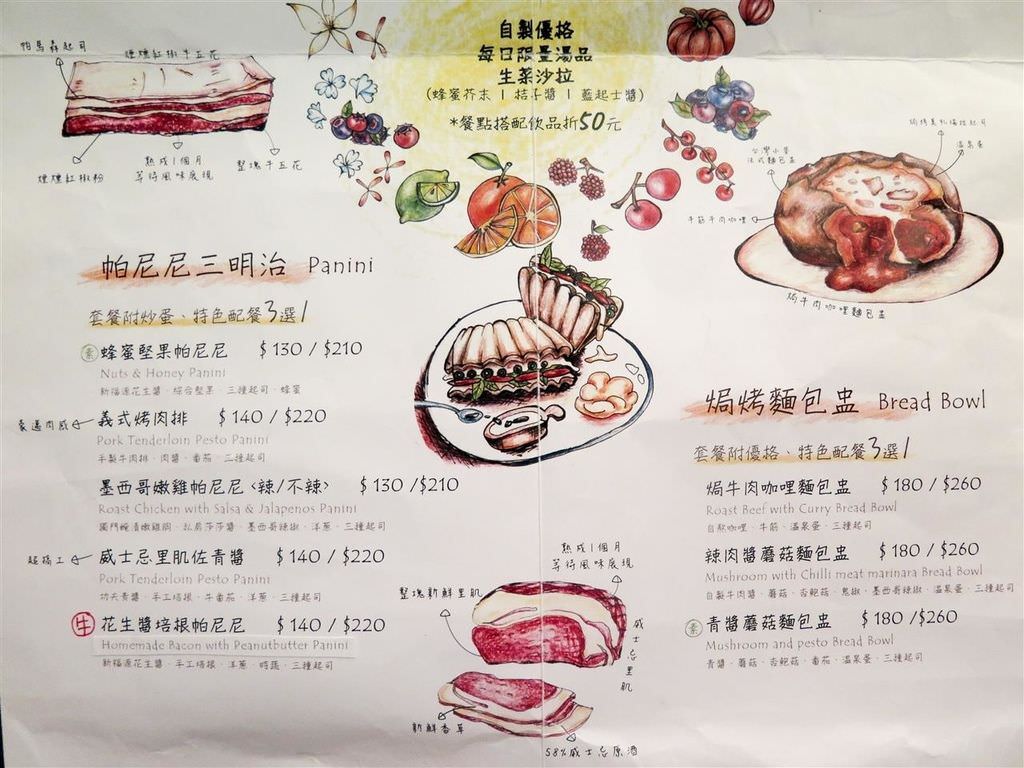 自製優格
每日限量湯品
生菜沙拉
(蜂蜜芥末 | 桔子醬 | 藍起士醬)
*餐點搭配飲品折50元
帕馬森起司
煙燻紅椒牛五花
煙燻紅椒粉
熟成1個月
等待風味展現
整塊牛五花
台灣小麥
法式麵包盅
溫泉蛋
牛筋牛肉咖哩
焗牛肉咖哩麵包盅
帕尼尼三明治 Panini
套餐附炒蛋、特色配餐3選1
素 蜂蜜堅果帕尼尼 $130 / $210
Nuts & Honey Panini
新福源花生醬．綜合堅果．三種起司．蜂蜜
豪邁肉感
義式烤肉排 $140 / $220
Pork Tenderloin Pesto Panini
手製牛肉排．肉醬．番茄．三種起司
墨西哥嫩雞帕尼尼<辣/不辣> $130 /$210
Roast Chicken with Salsa & Jalapenos Panini
獨門醃漬嫩雞胸．私房莎莎醬．墨西哥辣椒．洋蔥．三種起司
超搞工
威士忌里肌佐青醬 $140 / $220
Pork Tenderloin Pesto Panini
功夫青醬．手工培根．牛番茄．洋蔥．三種起司
牛 花生醬培根帕尼尼 $140 / $220
Homemade Bacon with Peanutbutter Panini
新福源花生醬．手工培根．洋蔥．時蔬．三種起司
焗烤麵包盅 Bread Bowl
套餐附優格、特色配餐3選1
焗牛肉咖哩麵包盅 $180 / $260
Roast Beef with Curry Bread Bowl
自熬咖哩．牛筋．溫泉蛋．三種起司
辣肉醬蘑菇麵包盅 $180 / $260
Mushroom with Chilli meat marinara Bread Bowl
自製牛肉醬．蘑菇．杏鮑菇．鬼椒．墨西哥辣椒．溫泉蛋．三種起司
素 青醬蘑菇麵包盅 $180 /$260
Mushroom and pesto Bread Bowl
青醬．蘑菇．杏鮑菇．番茄．溫泉蛋．三種起司
熟成1個月
等待風味展現
整塊新鮮里肌
威士忌里肌
新鮮香草
58%威士忌原酒